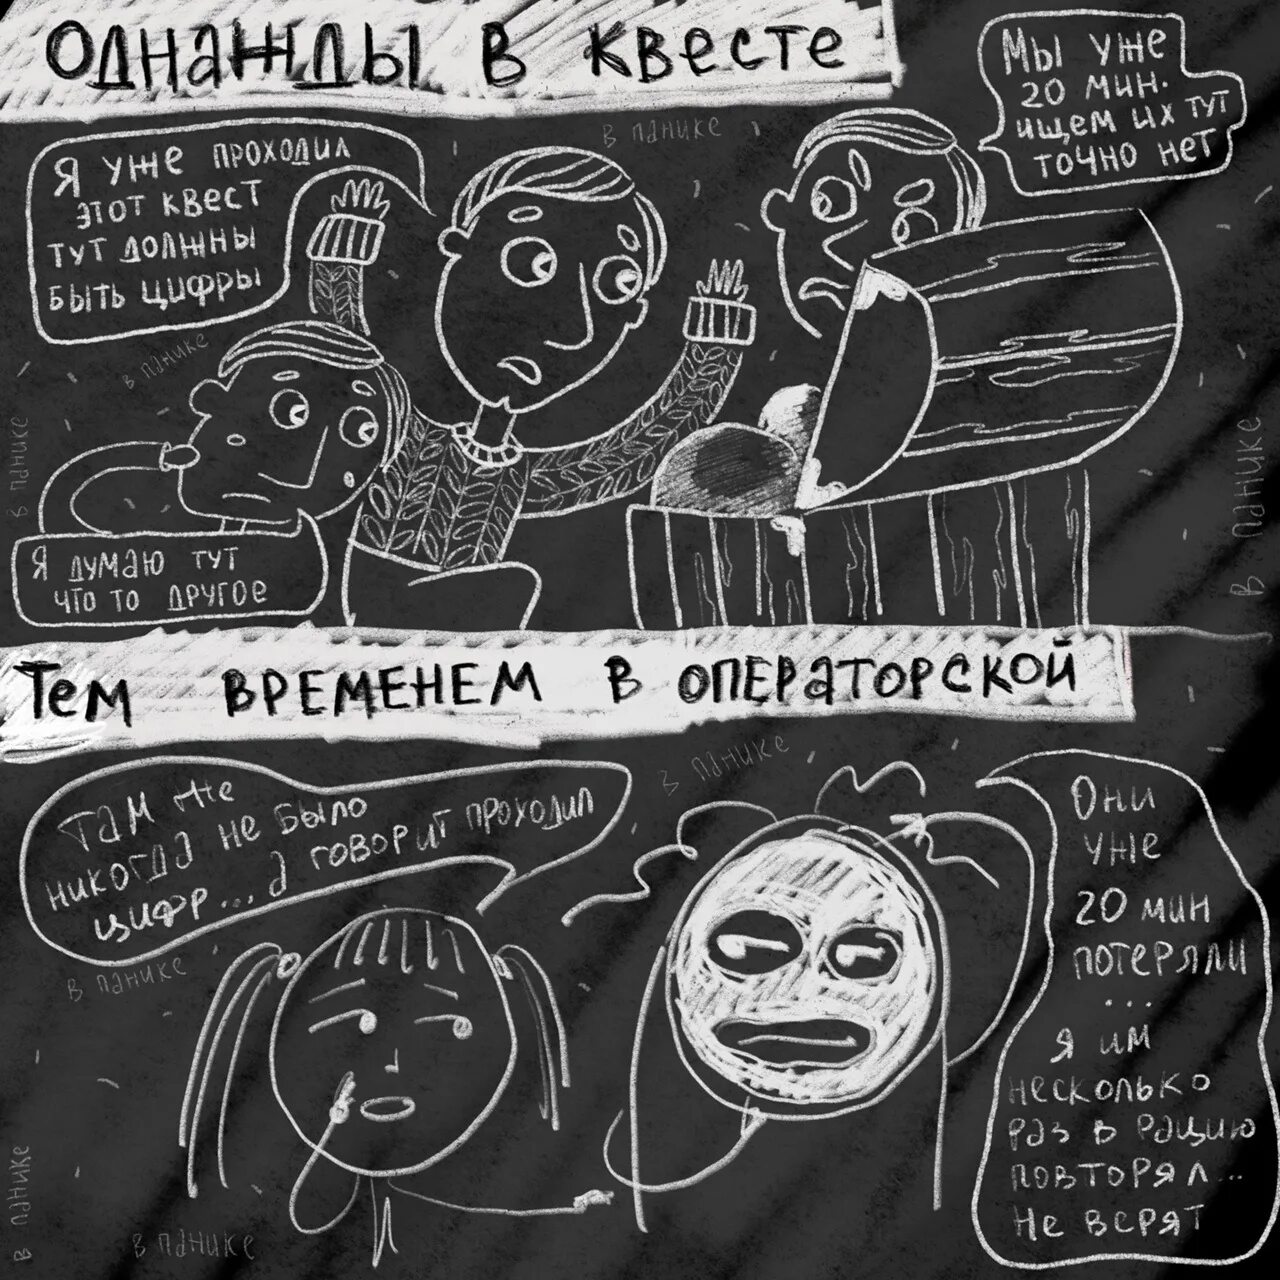 Однажды в квесте
Мы уже
20 мин.
ищем их тут
точно нет
в панике
Я уже проходил
этот квест
тут должны
быть цифры
в панике
в панике
в панике
Я думаю тут
что то другое
Тем временем в операторской
в панике
Там же
никогда не было
цифр... а говорит проходил
Они
уже
20 мин
потеряли
...
я им
несколько
раз в рацию
повторял...
не верят
в панике
в панике
в панике